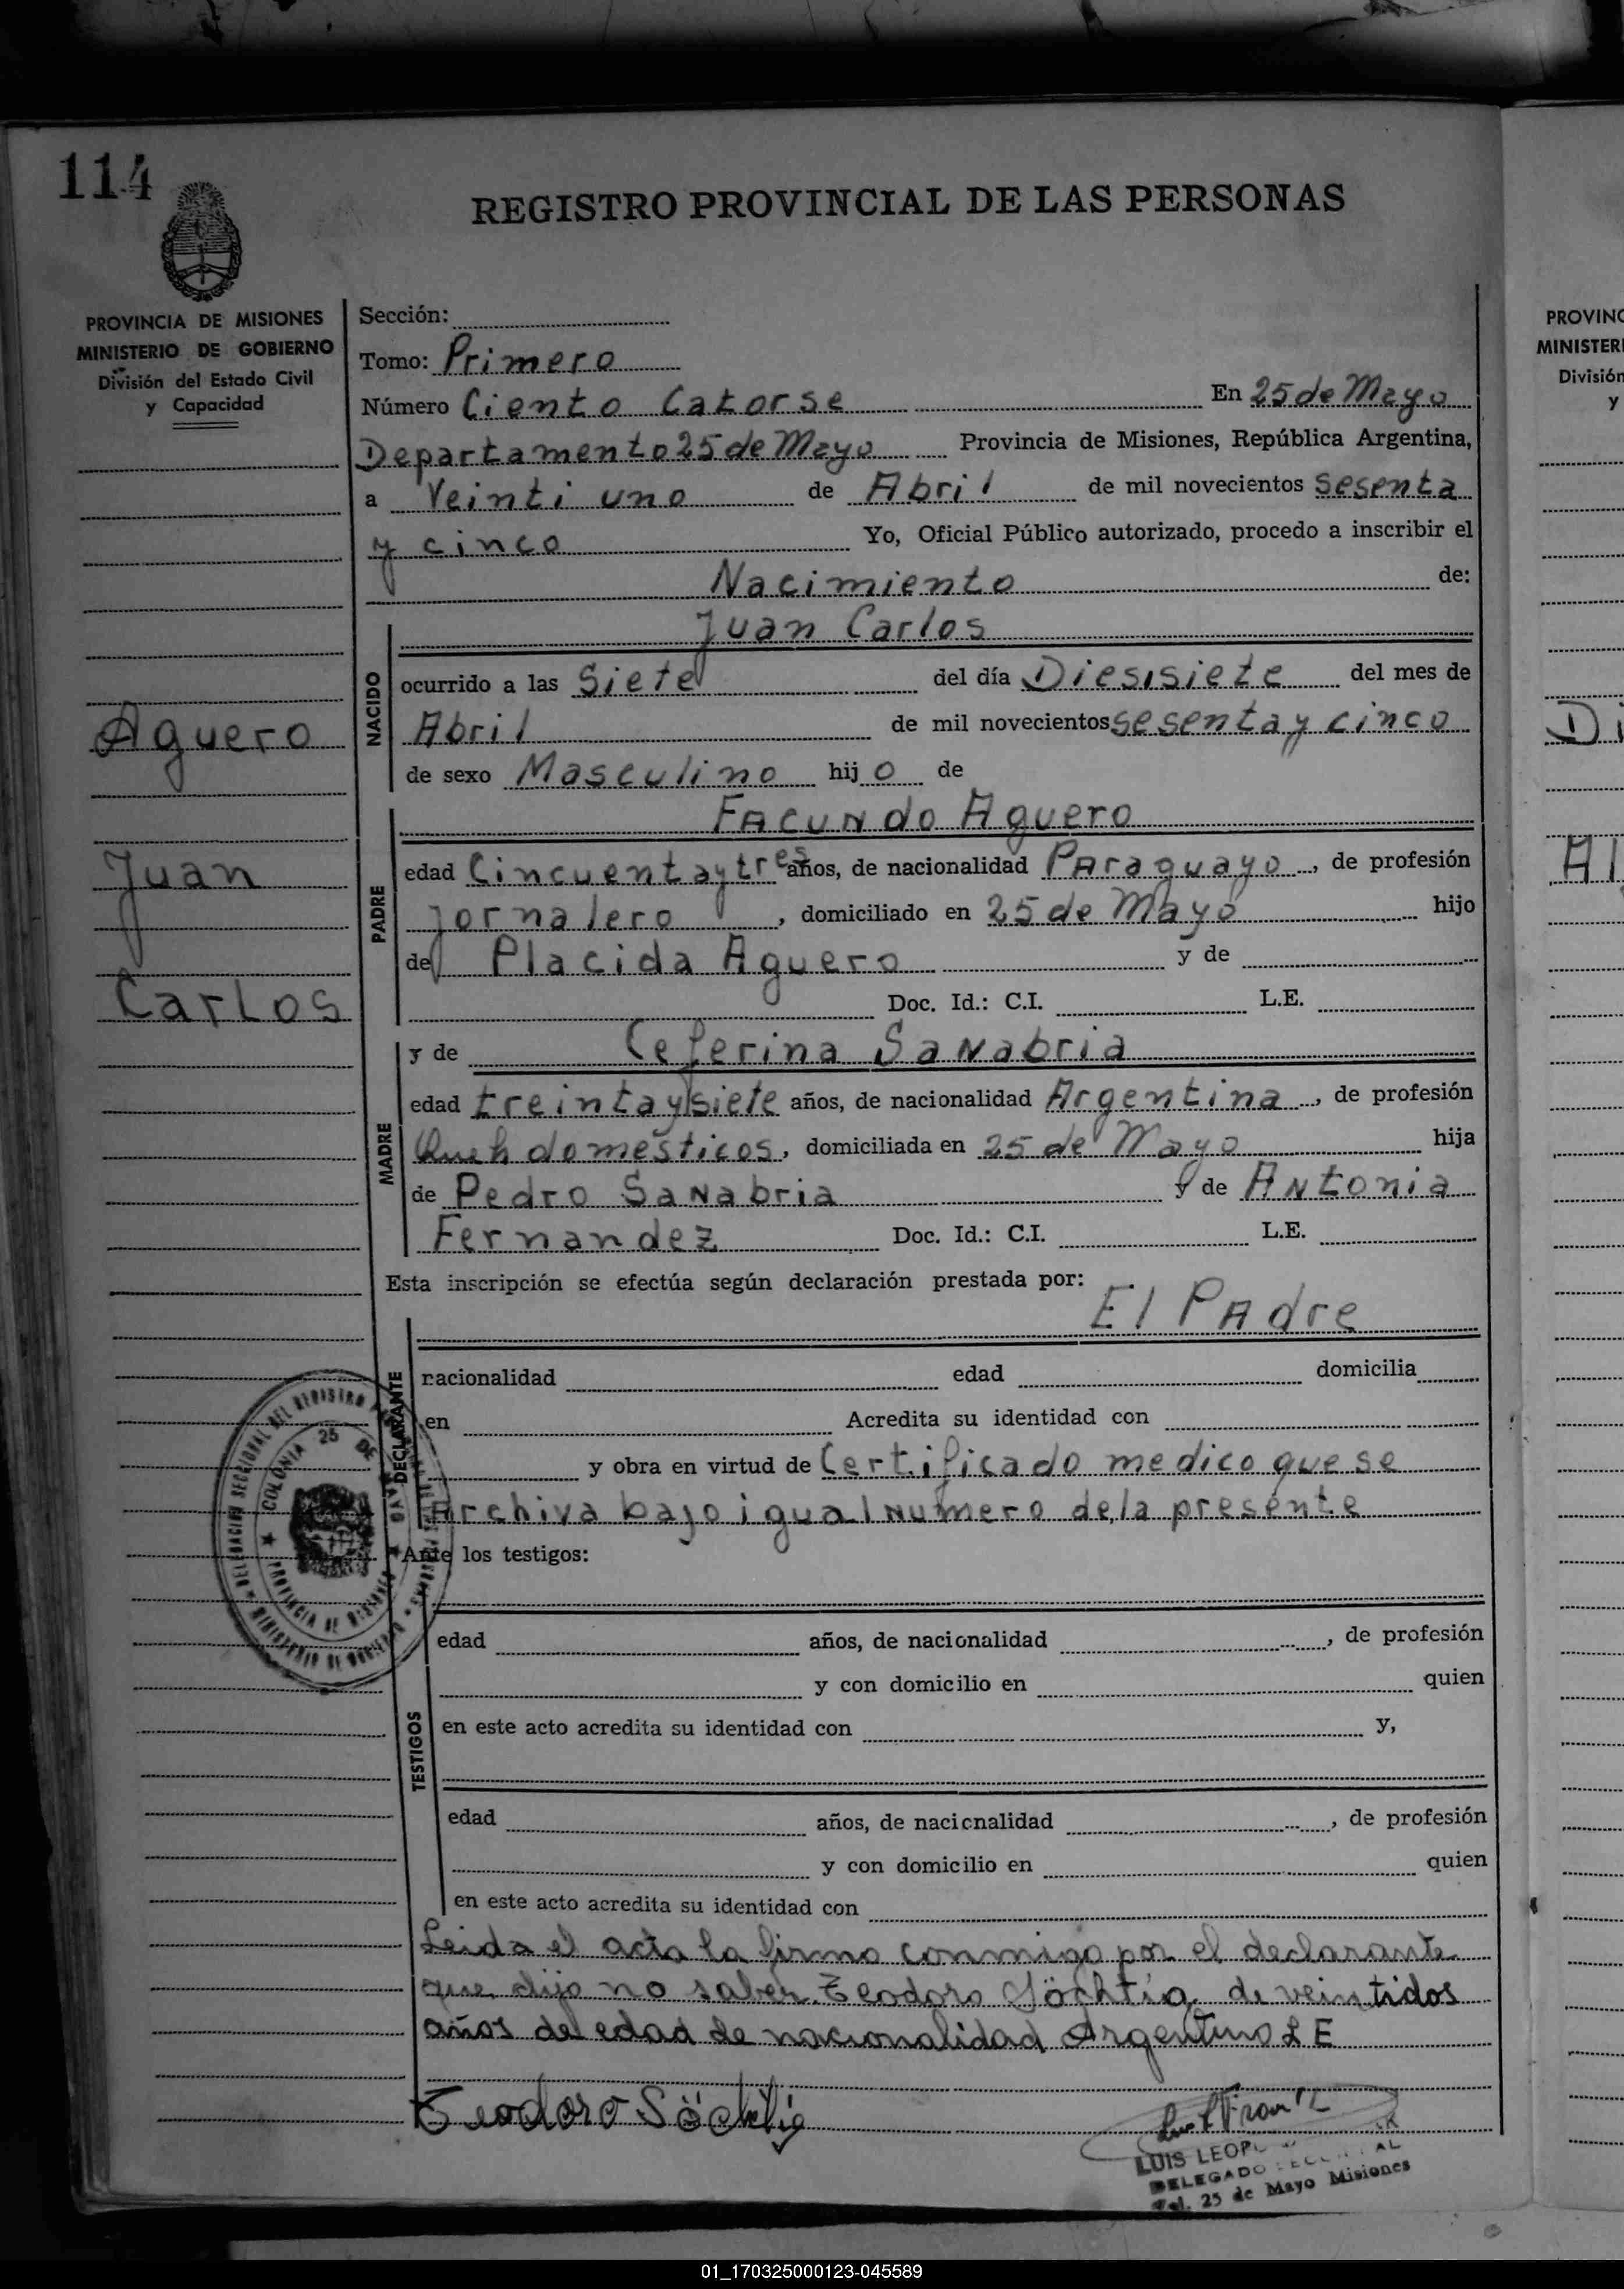 114
REGISTRO PROVINCIAL DE LAS PERSONAS
PROVINCIA DE MISIONES
MINISTERIO DE GOBIERNO
División del Estado Civil
y Capacidad
Aguero
Juan
Carlos
Sección:
Tomo: Primero
Número Ciento Catorse En 25 de Mayo
Departamento 25 de Mayo Provincia de Misiones, República Argentina,
a Veinti uno de Abril de mil novecientos sesenta
y cinco Yo, Oficial Público autorizado, procedo a inscribir el
Nacimiento de:
NACIDO
Juan Carlos
ocurrido a las Siete del día Diesisiete del mes de
Abril de mil novecientos sesenta y cinco
de sexo Masculino hijo de
PADRE
Facundo Aguero
edad Cincuenta y tres años, de nacionalidad Paraguayo, de profesión
jornalero, domiciliado en 25 de Mayo hijo
de Placida Aguero y de
Doc. Id.: C.I. L.E.
MADRE
y de Ceferina Sanabria
edad treinta y siete años, de nacionalidad Argentina, de profesión
domésticos, domiciliada en 25 de Mayo hija
de Pedro Sanabria y de Antonia
Fernandez Doc. Id.: C.I. L.E.
Esta inscripción se efectúa según declaración prestada por:
El Padre
DECLARANTE
nacionalidad edad domicilia
en Acredita su identidad con
y obra en virtud de Certificado medico que se
Archiva bajo igual numero de la presente
Ante los testigos:
TESTIGOS
edad años, de nacionalidad , de profesión
y con domicilio en quien
en este acto acredita su identidad con y,
edad años, de nacionalidad , de profesión
y con domicilio en quien
en este acto acredita su identidad con
Leida el acta la firma conmigo por el declarante
que dijo no saber Teodoro Söchtig de veintidos
años de edad de nacionalidad Argentino L E
Teodoro Söchtig
LUIS LEOP
DELEGADO
25 de Mayo Misiones
DELEGACION SECCIONAL DEL REGISTRO
MINISTERIO DE GOBIERNO
COLONIA 25 DE MAYO
PROVINCIA DE MISIONES
PROVINC
MINISTERI
División
y
Di
Al
01_170325000123-045589